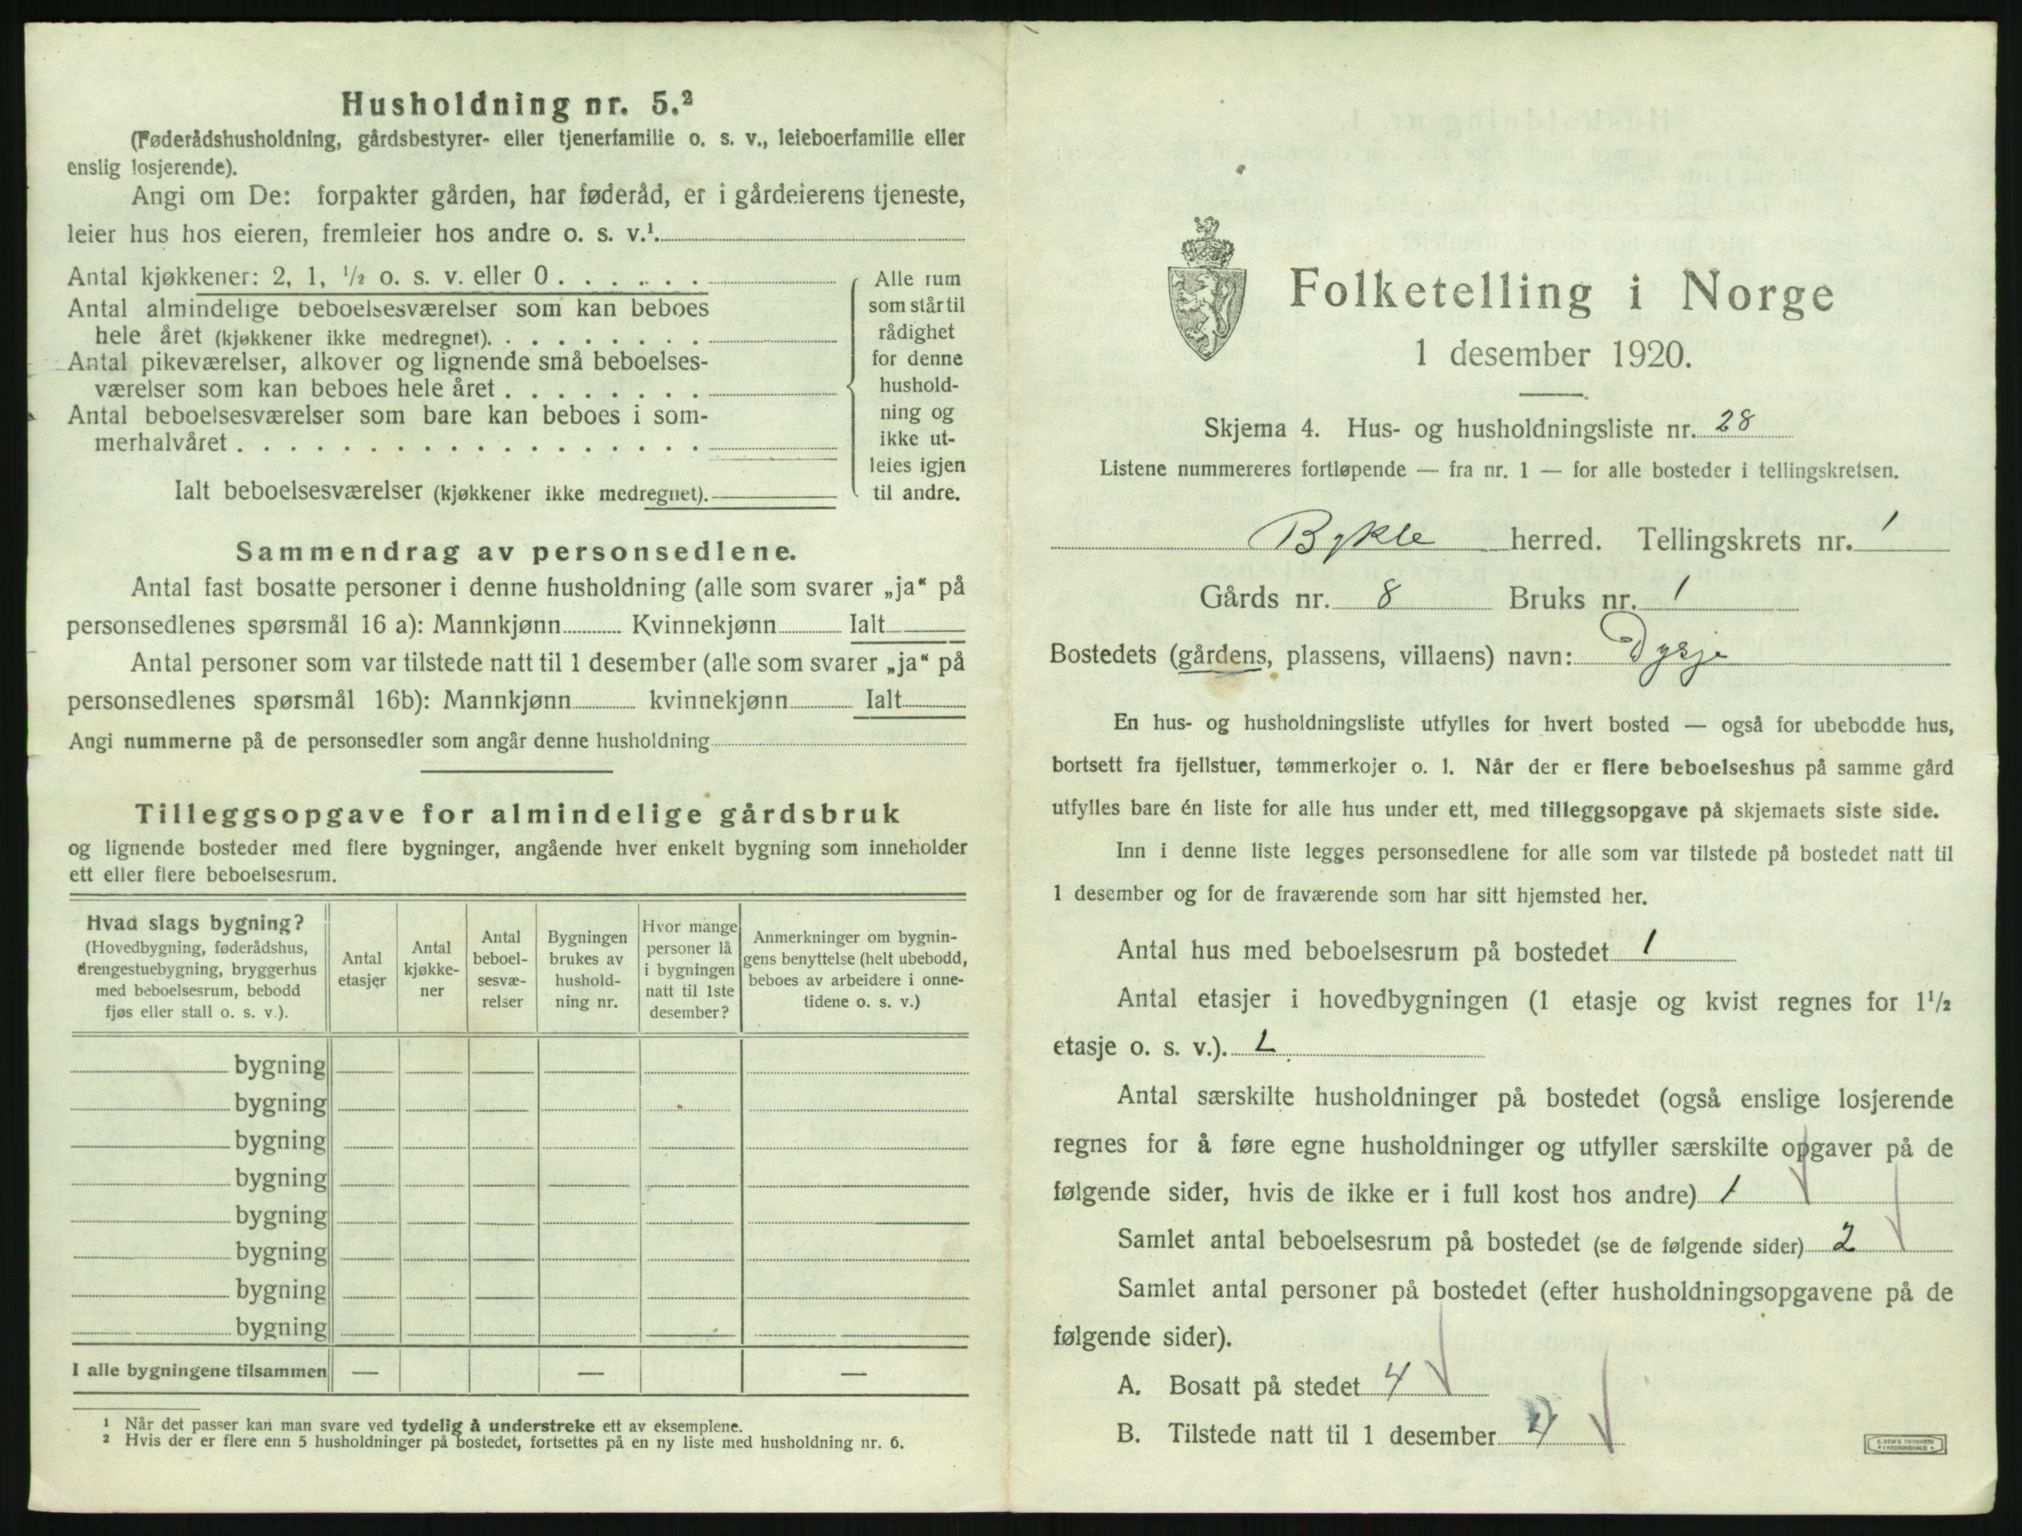 Husholdning nr. 5.²
(Føderådshusholdning, gårdsbestyrer- eller tjenerfamilie o. s. v., leieboerfamilie eller
enslig losjerende).
Angi om De: forpakter gården, har føderåd, er i gårdeierens tjeneste,
leier hus hos eieren, fremleier hos andre o. s. v.¹
Antal kjøkkener: 2, 1, ½ o. s. v. eller 0
Antal almindelige beboelsesværelser som kan beboes
hele året (kjøkkener ikke medregnet).
Antal pikeværelser, alkover og lignende små beboelses-
værelser som kan beboes hele året
Antal beboelsesværelser som bare kan beboes i som-
merhalvåret
Ialt beboelsesværelser (kjøkkener ikke medregnet).
Alle rum
som står til
rådighet
for denne
hushold-
ning og
ikke ut-
leies igjen
til andre.
Sammendrag av personsedlene.
Antal fast bosatte personer i denne husholdning (alle som svarer „ja“ på
personsedlenes spørsmål 16 a): Mannkjønn Kvinnekjønn Ialt
Antal personer som var tilstede natt til 1 desember (alle som svarer „ja“ på
personsedlenes spørsmål 16b): Mannkjønn kvinnekjønn Ialt
Angi nummerne på de personsedler som angår denne husholdning
Tilleggsopgave for almindelige gårdsbruk
og lignende bosteder med flere bygninger, angående hver enkelt bygning som inneholder
ett eller flere beboelsesrum.
Hvad slags bygning?
(Hovedbygning, føderådshus,
drengestuebygning, bryggerhus
med beboelsesrum, bebodd
fjøs eller stall o. s. v.).
Antal
etasjer
Antal
kjøkke-
ner
Antal
beboel-
sesvæ-
relser
Bygningen
brukes av
hushold-
ning nr.
Hvor mange
personer lå
i bygningen
natt til 1ste
desember?
Anmerkninger om bygnin-
gens benyttelse (helt ubebodd,
beboes av arbeidere i onne-
tidene o. s. v.)
bygning
bygning
bygning
bygning
bygning
bygning
bygning
bygning
I alle bygningene tilsammen — — —
¹ Når det passer kan man svare ved tydelig å understreke ett av eksemplene.
² Hvis der er flere enn 5 husholdninger på bostedet, fortsettes på en ny liste med husholdning nr. 6.
Folketelling i Norge
1 desember 1920.
Skjema 4. Hus- og husholdningsliste nr. 28
Listene nummereres fortløpende — fra nr. 1 — for alle bosteder i tellingskretsen.
Bykle herred. Tellingskrets nr. 1
Gårds nr. 8 Bruks nr. 1
Bostedets (gårdens, plassens, villaens) navn: Dysje
En hus- og husholdningsliste utfylles for hvert bosted — også for ubebodde hus,
bortsett fra fjellstuer, tømmerkojer o. l. Når der er flere beboelseshus på samme gård
utfylles bare én liste for alle hus under ett, med tilleggsopgave på skjemaets siste side.
Inn i denne liste legges personsedlene for alle som var tilstede på bostedet natt til
1 desember og for de fraværende som har sitt hjemsted her.
Antal hus med beboelsesrum på bostedet 1
Antal etasjer i hovedbygningen (1 etasje og kvist regnes for 1½
etasje o. s. v.).
Antal særskilte husholdninger på bostedet (også enslige losjerende
regnes for å føre egne husholdninger og utfyller særskilte opgaver på de
følgende sider, hvis de ikke er i full kost hos andre) 1
Samlet antal beboelsesrum på bostedet (se de følgende sider) 2
Samlet antal personer på bostedet (efter husholdningsopgavene på de
følgende sider).
A. Bosatt på stedet 4
B. Tilstede natt til 1 desember